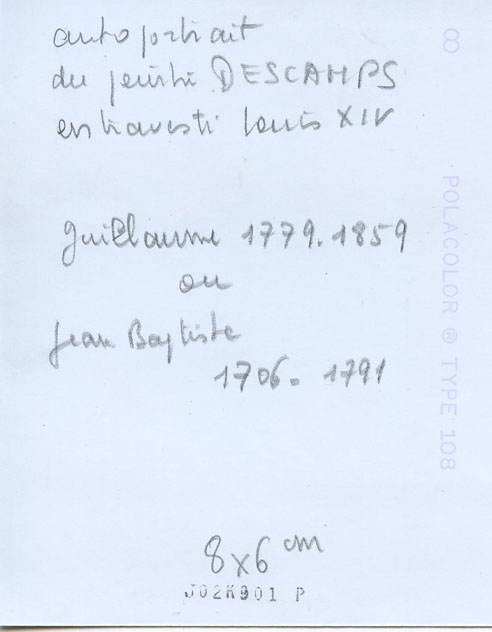 autoportrait
du peintre DESCAMPS
en travesti Louis XIV
Guillaume 1779.1859
ou
Jean Baptiste
1706-1791
8x6 cm
J02K901 P
8
POLACOLOR ® TYPE 108